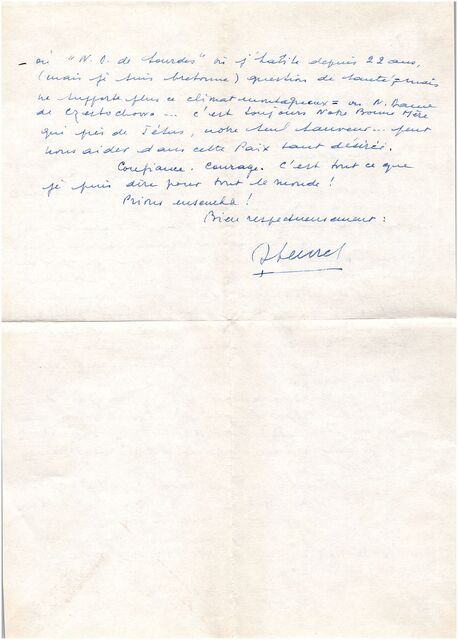 - ou "N. D. de Lourdes" où j'habite depuis 22 ans,
(mais je suis bretonne) question de santé = mais
ne supporte plus ce climat montagneux = ou N. Dame
de Czestochowa... c'est toujours Notre Bonne Mère
qui près de Jésus, notre seul Sauveur... peut
nous aider dans cette Paix tant désirée.
Confiance. Courage. C'est tout ce que
je puis dire pour tout le monde !
Prions ensemble !
Bien respectueusement :